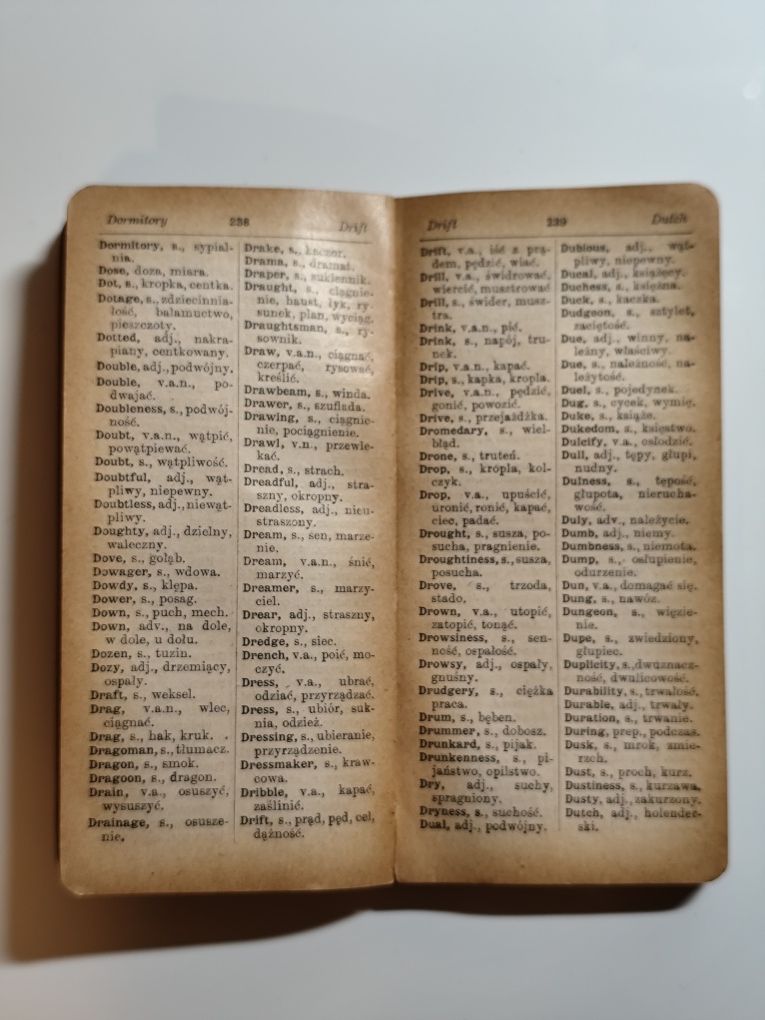 Dormitory 238 Drift
Dormitory, s., sypial-
nia.
Dose, doza, miara.
Dot, s., kropka, centka.
Dotage, s., zdziecinnia-
łość, bałamuctwo,
pieszczoty.
Dotted, adj., nakra-
piany, centkowany.
Double, adj., podwójny.
Double, v.a.n., po-
dwajać.
Doubleness, s., podwój-
ność.
Doubt, v.a.n., wątpić,
powątpiewać.
Doubt, s., wątpliwość.
Doubtful, adj., wąt-
pliwy, niepewny.
Doubtless, adj., niewąt-
pliwy.
Doughty, adj., dzielny,
waleczny.
Dove, s., gołąb.
Dowager, s., wdowa.
Dowdy, s., klępa.
Dower, s., posag.
Down, s., puch, mech.
Down, adv., na dole,
w dole, u dołu.
Dozen, s., tuzin.
Dozy, adj., drzemiący,
ospały.
Draft, s., weksel.
Drag, v.a.n., wlec,
ciągnać.
Drag, s., hak, kruk.
Dragoman, s., tłumacz.
Dragon, s., smok.
Dragoon, s., dragon.
Drain, v.a., osuszyć,
wysuszyć.
Drainage, s., osusze-
nie.
Drake, s., kaczor.
Drama, s., dramat.
Draper, s., sukiennik.
Draught, s., ciągnie-
nie, haust, łyk, ry-
sunek, plan, wyciąg.
Draughtsman, s., ry-
sownik.
Draw, v.a.n., ciągnać,
czerpać, rysować,
kreślić.
Drawbeam, s., winda.
Drawer, s., szuflada.
Drawing, s., ciągnie-
nie, pociągnienie.
Drawl, v.n., przewle-
kać.
Dread, s., strach.
Dreadful, adj., stra-
szny, okropny.
Dreadless, adj., nieu-
straszony.
Dream, s., sen, marze-
nie.
Dream, v.a.n., śnić,
marzyć.
Dreamer, s., marzy-
ciel.
Drear, adj., straszny,
okropny.
Dredge, s., siec.
Drench, v.a., poić, mo-
czyć.
Dress, v.a., ubrać,
odziać, przyrządzać.
Dress, s., ubiór, suk-
nia, odzież.
Dressing, s., ubieranie,
przyrządzenie.
Dressmaker, s., kraw-
cowa.
Dribble, v.a., kapać,
zaślinić.
Drift, s., prąd, pęd, cel,
dążność.
Drift 239 Dutch
Drift, v.a., iść z prą-
dem, pędzić, wiać.
Drill, v.a., świdrować,
wiercić, musztrować
Drill, s., świder, musz-
tra.
Drink, v.a.n., pić.
Drink, s., napój, tru-
nek.
Drip, v.a.n., kapać.
Drip, s., kapka, kropla.
Drive, v.a., pędzić,
gonić, powozić.
Drive, s., przejażdżka.
Dromedary, s., wiel-
błąd.
Drone, s., truteń.
Drop, s., kropla, kol-
czyk.
Drop, v.a., upuścić,
uronić, ronić, kapać,
ciec, padać.
Drought, s., susza, po-
sucha, pragnienie.
Droughtiness, s., susza,
posucha.
Drove, s., trzoda,
stado.
Drown, v.a., utopić,
zatopić, tonąć.
Drowsiness, s., sen-
ność, ospałość.
Drowsy, adj., ospały,
gnuśny.
Drudgery, s., ciężka
praca.
Drum, s., bęben.
Drummer, s., dobosz.
Drunkard, s., pijak.
Drunkenness, s., pi-
jaństwo, opilstwo.
Dry, adj., suchy,
spragniony.
Dryness, s., suchość.
Dual, adj., podwójny.
Dubious, adj., wąt-
pliwy, niepewny.
Ducal, adj., książęcy.
Duchess, s., księżna.
Duck, s., kaczka.
Dudgeon, s., sztylet,
zaciętość.
Due, adj., winny, na-
leżny, właściwy.
Due, s., należność, na-
leżytość.
Duel, s., pojedynek.
Dug, s., cycek, wymię.
Duke, s., książe.
Dukedom, s., księstwo.
Dulcify, v.a., osłodzić.
Dull, adj., tępy, głupi,
nudny.
Dulness, s., tępość,
głupota, nierucha-
wość.
Duly, adv., należycie.
Dumb, adj., niemy.
Dumbness, s., niemota.
Dump, s., osłupienie,
odurzenie.
Dun, v.a., domagać się.
Dung, s., nawóz.
Dungeon, s., więzie-
nie.
Dupe, s., zwiedziony,
głupiec.
Duplicity, s., dwuznacz-
ność, dwulicowość.
Durability, s., trwałość.
Durable, adj., trwały.
Duration, s., trwanie.
During, prep., podczas.
Dusk, s., mrok, zmie-
rzch.
Dust, s., proch, kurz.
Dustiness, s., kurzawa.
Dusty, adj., zakurzony.
Dutch, adj., holender-
ski.